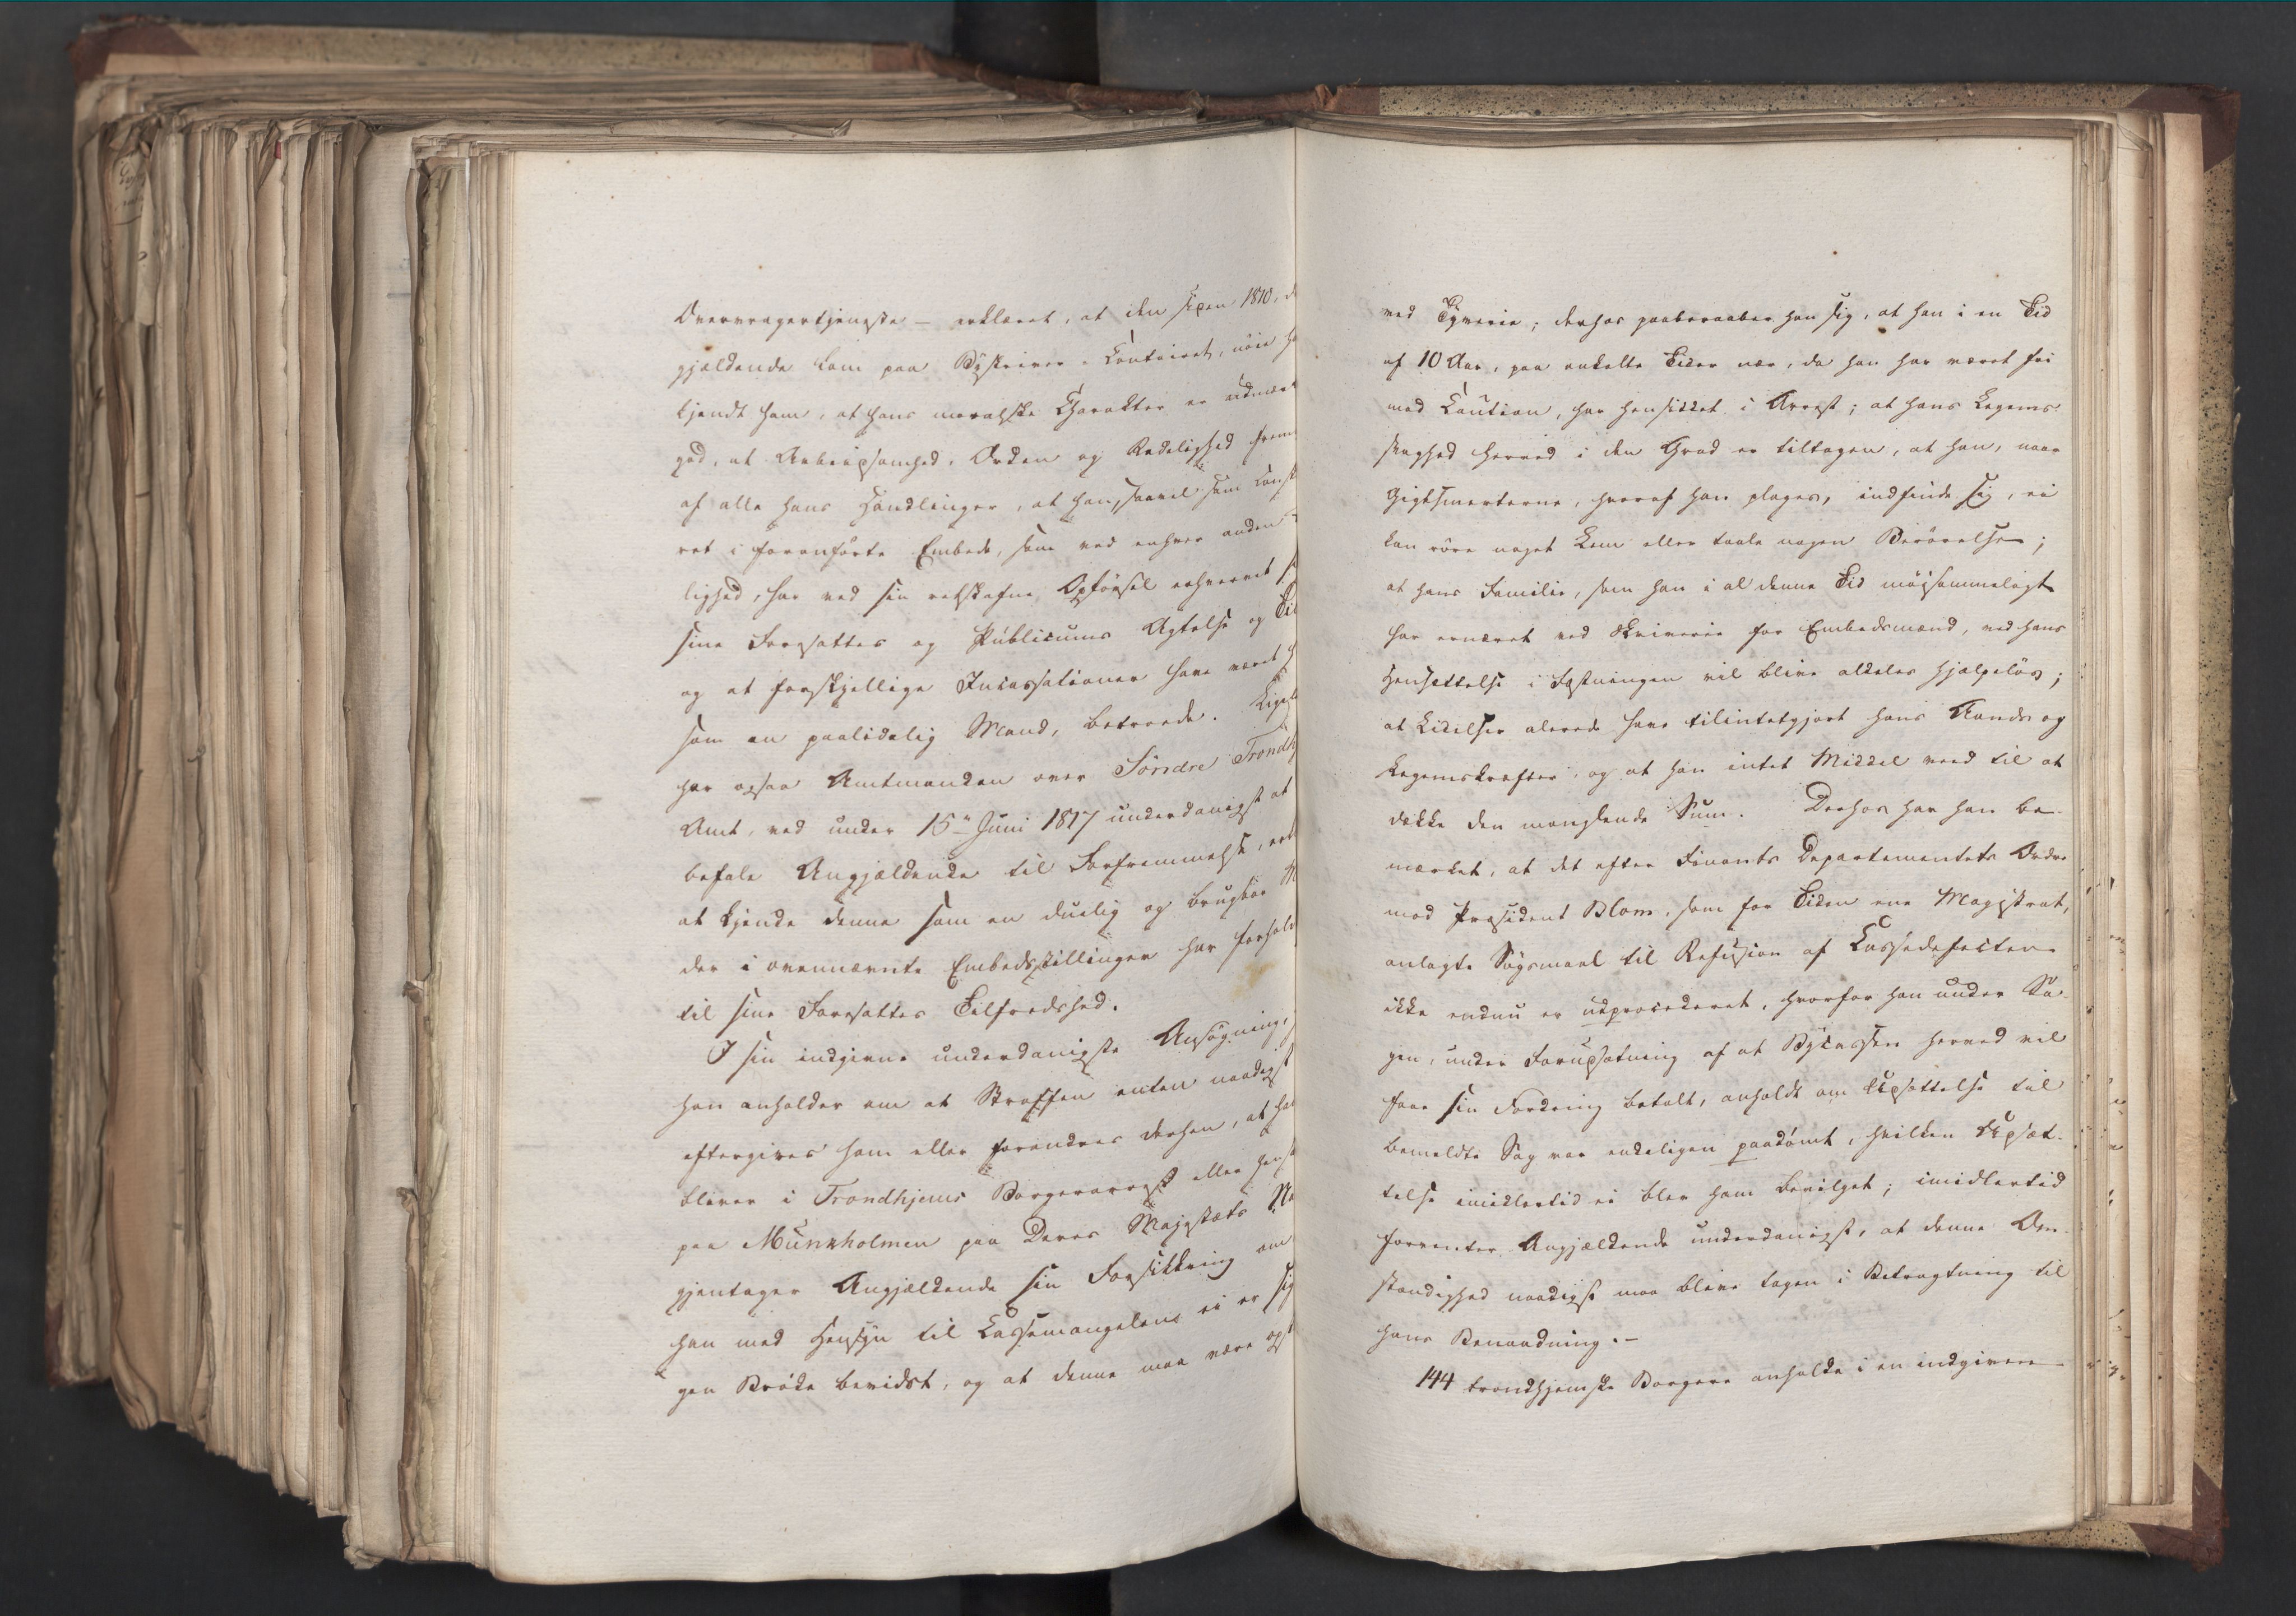 Overvragertjeneste – erklæret, at den siden 1810, d
gjældende kom paa Byskriver-Contoiret, nöie ha
kjendt ham, at hans moralske Charakter er udmær
god, at Arbeidsomhed, Orden og Redelighed frem
af alle hans Handlinger, at han, saavel som Const
ret i foranförte Embede, som ved enhver anden
lighed, har ved sin retskafne Opförsel erhvervet s
sine Foresattes og Publicums Agtelse og Til
og at forskjellige Incassationer have været h
som en paalidelig Mand, betroede. Liges
har ogsaa Amtmanden over Söndre Trondh
Amt, ved under 15de Juni 1817 underdanigst at
befale Angjældende til Forfremmelse, erk
at kjende denne som en duelig og brugbar M
der i ovennævnte Embedsstillinger har forhold
til sine Foresattes Tilfredshed.
I sin indgivne underdanigste Ansögning,
han anholder om at Straffen enten naadigst
eftergives ham eller forandres derhen, at han
bliver i Trondhjems Borgerarrest eller hens
paa Munkholmen paa Deres Majestæts Na
gjentager Angjældende sin Forsikkring om
han med Hensyn til Cassemangelens ei er sig
gen Bröde bevidst, og at denne maa være ops
ved Tyverie; derhos paaberaaber han sig, at han i en Tid
af 10 Aar, paa enkelte Tider nær, da han har været fri
mod Caution, har hensiddet i Arrest; at hans Legems
svaghed herved i den Grad er tiltagen, at han, naar
Gigtsmerterne, hvoraf han plages, indfinde sig, ei
kan röre noget Lem eller taale nogen Berörelse;
at hans Familie, som han i al denne Tid möisommeligt
har ernæret ved Skriverie for Embedsmænd, ved hans
Hensættelse i Fæstningen vil blive aldeles hjælpelös;
at Lidelser alerede have tilintetgjort hans Aands og
Legemskræfter, og at han intet Middel veed til at
dække den manglende Sum. Derhos har han be-
mærket, at det efter Finants Departementets Ordre
mod Præsident Blom, som for Tiden ene Magistrat,
anlagte Sögsmaal til Refusion af Cassedefecten
ikke endnu er udprocederet, hvorfor han under Sa-
gen, under Forudsætning af at Bycassen herved vil
faae sin Fordring betalt, anholdt om Udsættelse til
bemeldte Sag var endeligen paadömt, hvilken Udsæt-
telse imidlertid ei blev ham bevilget; imidlertid
forventer Angjældende underdanigst, at denne Om-
stændighed naadigst maa blive tagen i Betragtning til
hans Benaadning. –
144 trondhjemske Borgere anholde i en indgiven